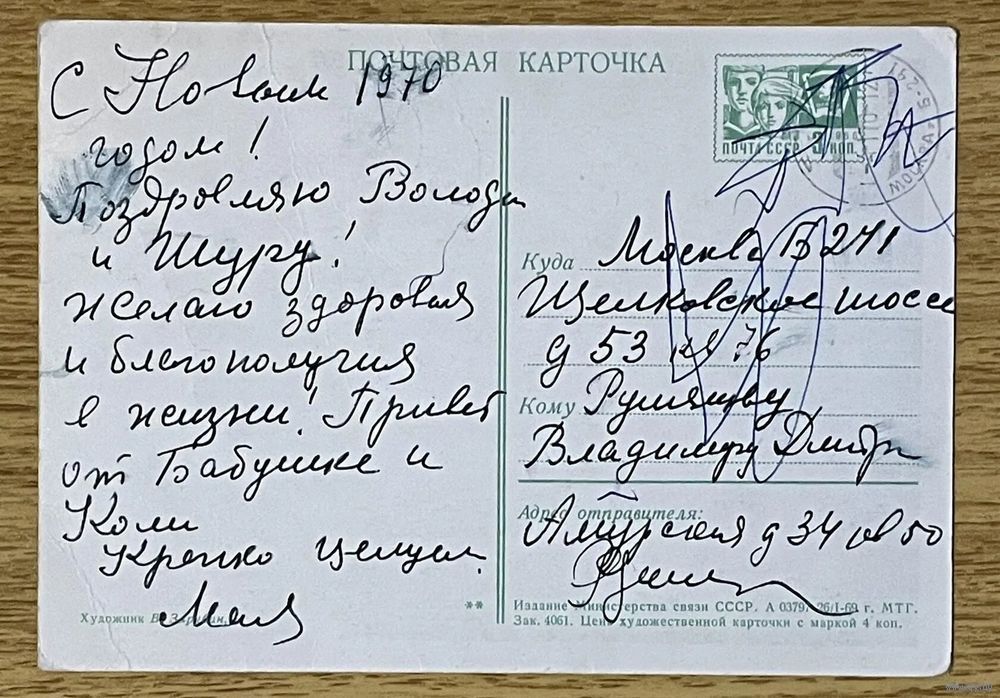 ПОЧТОВАЯ КАРТОЧКА
С Новым 1970
годом!
Поздровляю Володю
и Шуру!
желаю здоровья
и благополучия
в жизни! Привет
от Бабушке и
Коли
Крепко целуем.
Художник В. Зарубин.
**
ПОЧТА СССР 3 КОП.
МОСКВА
Куда Москва Б 241
Щелковское шоссе
д 53 кв 76
Кому Румянцеву
Владимиру Дмитр
Адрес отправителя:
Амурская д 34 кв 50
Издание Министерства связи СССР. А 0379. 26/I-69 г. МТГ.
Зак. 4061. Цена художественной карточки с маркой 4 коп.